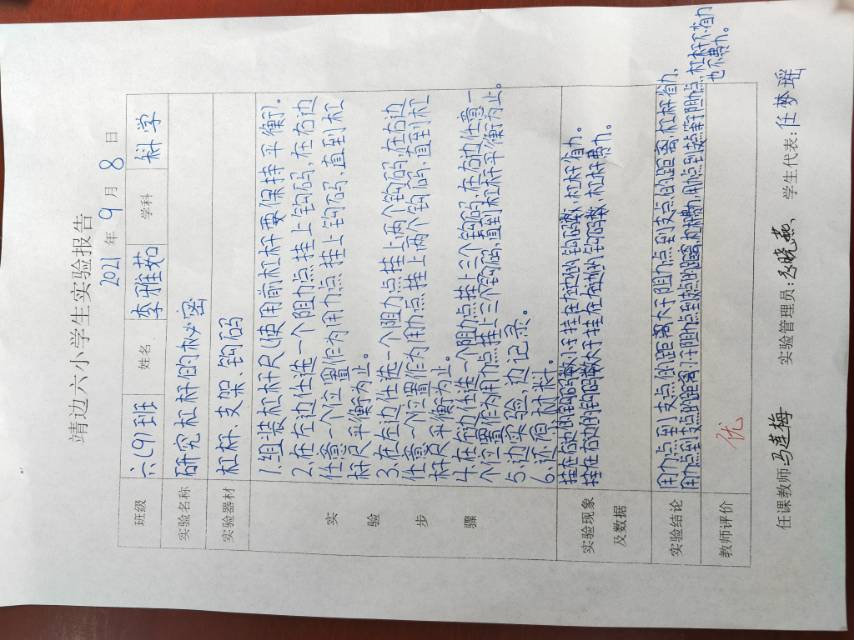 靖边六小学生实验报告
2021 年 9 月 8 日
班级 六(9)班 姓名 李雅茹 学科 科学
实验名称 研究杠杆的秘密
实验器材 杠杆、支架、钩码
实验步骤
1.组装杠杆尺(使用前杠杆要保持平衡).
2.在左边任选一个阻力点挂上钩码,在右边
任意一个位置作为用力点挂上钩码,直到杠
杆尺平衡为止。
3.在左边任选一个阻力点挂上两个钩码,在右边
任意一个位置作为用力点挂上两个钩码,直到杠
杆尺平衡为止。
4.在左边任选一个阻力点挂上三个钩码,在右边任意一
个位置作为用力点挂上三个钩码,直到杠杆平衡为止。
5.边实验,边记录。
6.还原材料.
实验现象
及数据
挂在右边的钩码数小于挂在左边的钩码数,杠杆省力。
挂在右边的钩码数大于挂在左边的钩码数,杠杆费力。
实验结论
用力点到支点的距离大于阻力点到支点的距离,杠杆省力,
用力点到支点的距离小于阻力点到支点的距离,杠杆费力,用点到支点等于阻力点,杠杆不省力
也不费力。
教师评价 优
任课教师 马莲梅 实验管理员: 晓燕、 学生代表: 任梦瑶